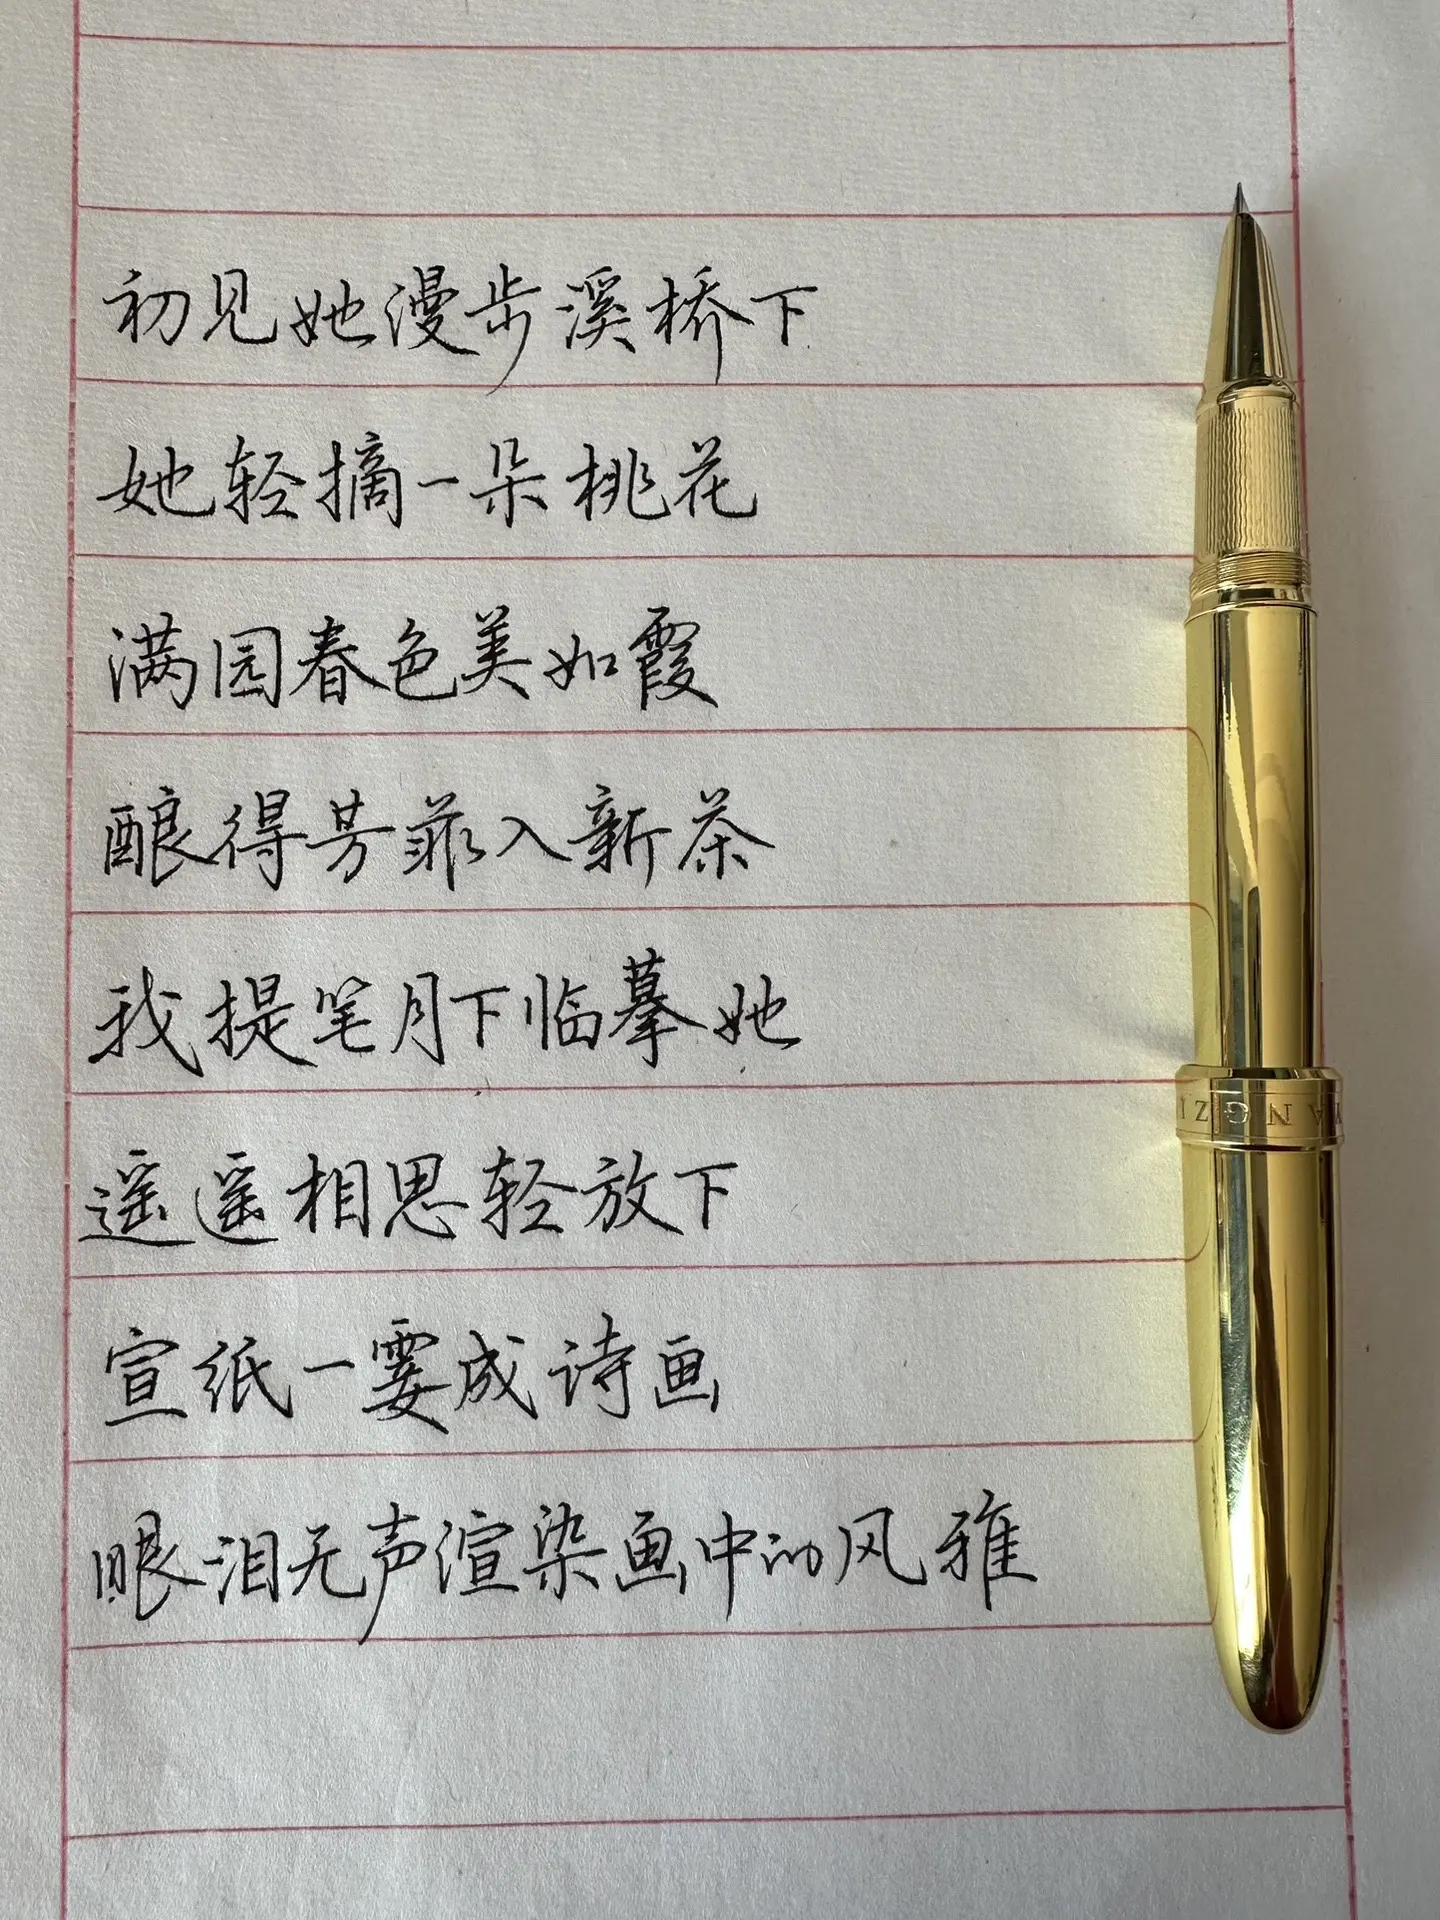 初见她漫步溪桥下
她轻摘一朵桃花
满园春色美如霞
酿得芳菲入新茶
我提笔月下临摹她
遥遥相思轻放下
宣纸一霎成诗画
眼泪无声渲染画中的风雅
YANGZI